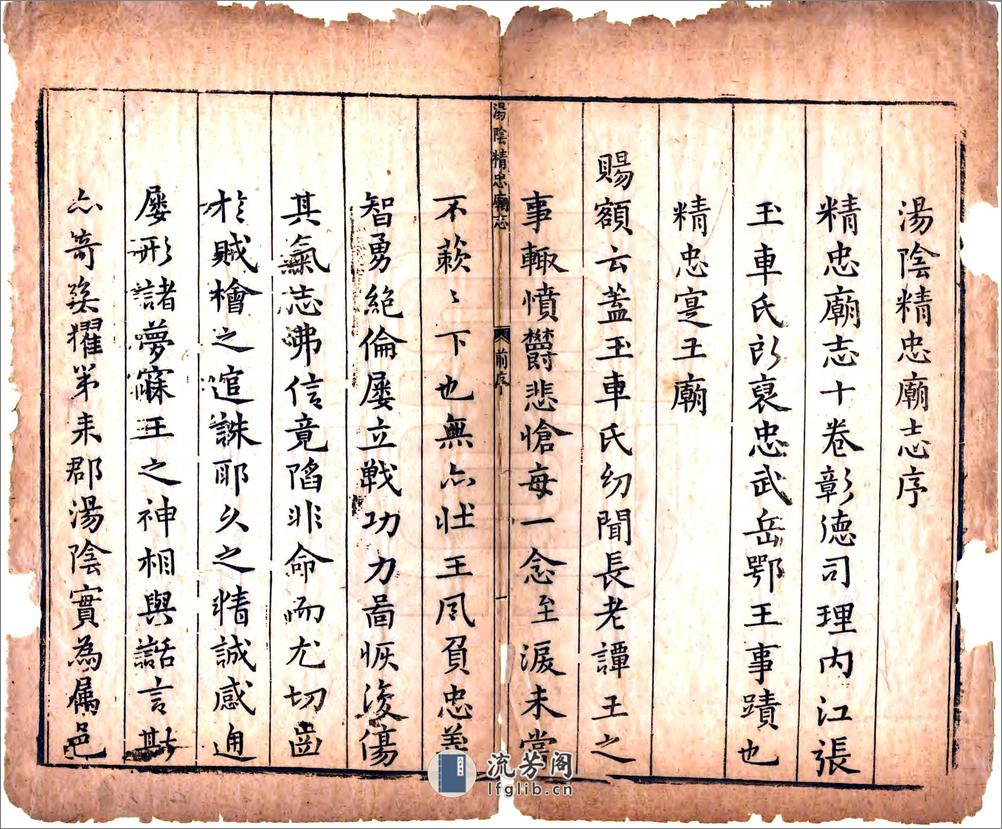 湯陰精忠廟志序
精忠廟志十卷彰德司理内江張
玉車氏所裒忠武岳鄂王事蹟也
精忠寔王廟
賜額云蓋玉車氏幼聞長老譚王之
事輙憤欝悲愴每一念至淚未嘗
湯陰精忠廟志
前序
一
不蔌〻下也無亦壯王夙負忠義
智勇絕倫屢立戰功力啚恢復傷
其氣志沸信竟陷非命而尤切齒
於賊檜之逭誅耶久之精誠感通
屡形諸夢寐王之神相與話言斯
亦竒矣擢第来郡湯陰實為属邑
流芳阁
lfglib.cn